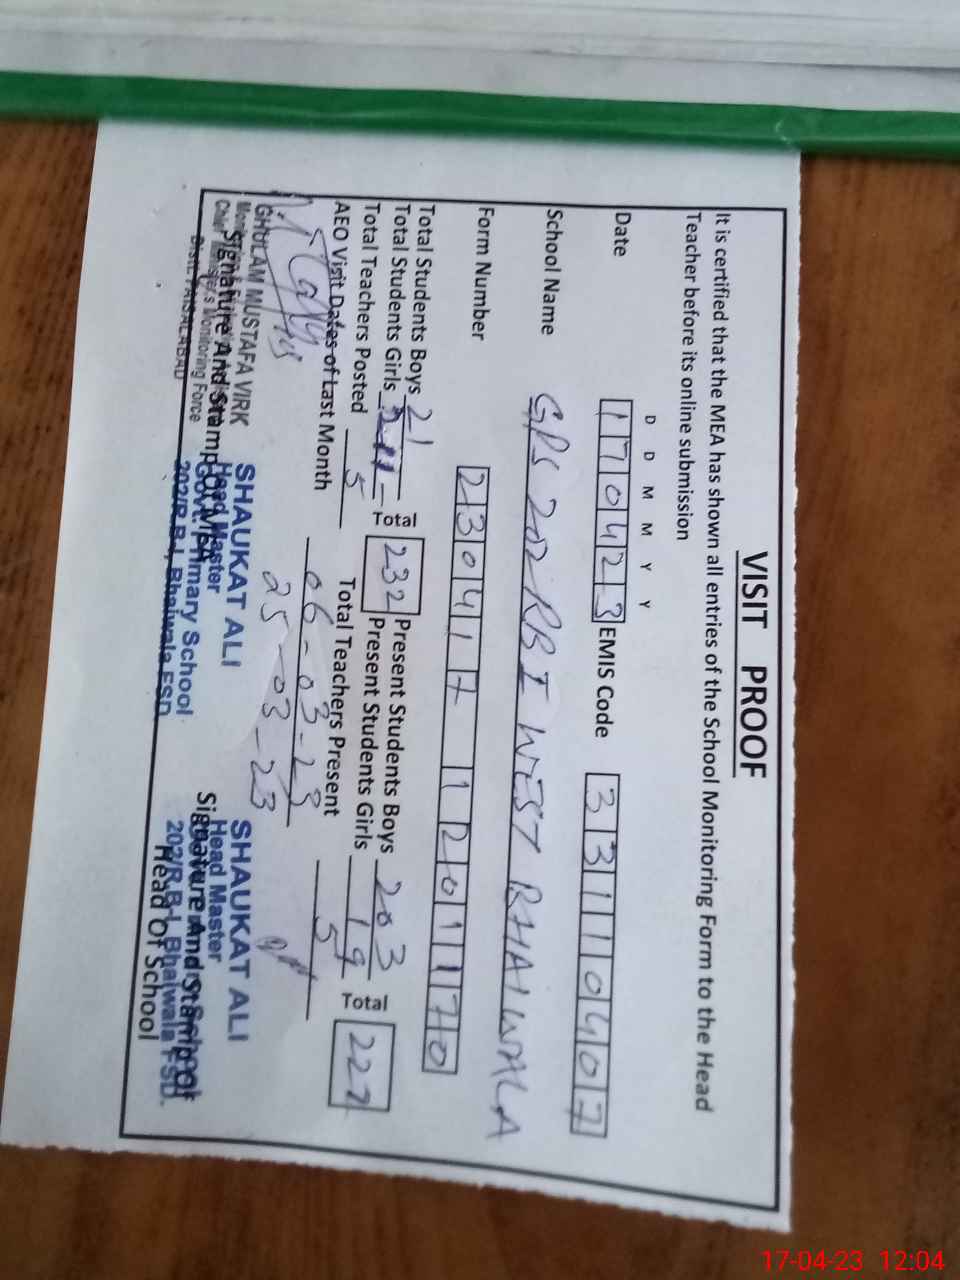 VISIT PROOF
It is certified that the MEA has shown all entries of the School Monitoring Form to the Head
Teacher before its online submission
D D M M Y Y
Date 170423 EMIS Code 33110407
School Name GPS 202 RB I WEST BHAIWALA
Form Number 230417 12011170
Total Students Boys 21 Total 232 Present Students Boys 203 Total 222
Total Students Girls Present Students Girls 19
Total Teachers Posted 5 Total Teachers Present 5
AEO Visit Dates of Last Month 06-03-23
25-03-23
GHULAM MUSTAFA VIRK
Chief Minister's Monitoring Force
Distt. FAISALABAD
Signature And Stamp Of MEA
SHAUKAT ALI
Head Master
Govt. Primary School
202/R.B-I, Bhaiwala FSD.
SHAUKAT ALI
Head Master
202/R.B-I, Bhaiwala FSD.
Signature And Stamp Of
Head Of School
17-04-23 12:04